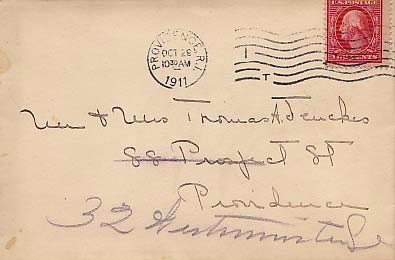 PROVIDENCE, R.I.
OCT 28
10 30 AM
1911
T
CENTS
Mr & Mrs Thomas A Jenckes
88 Prospect St
Providence
32 Westminster St